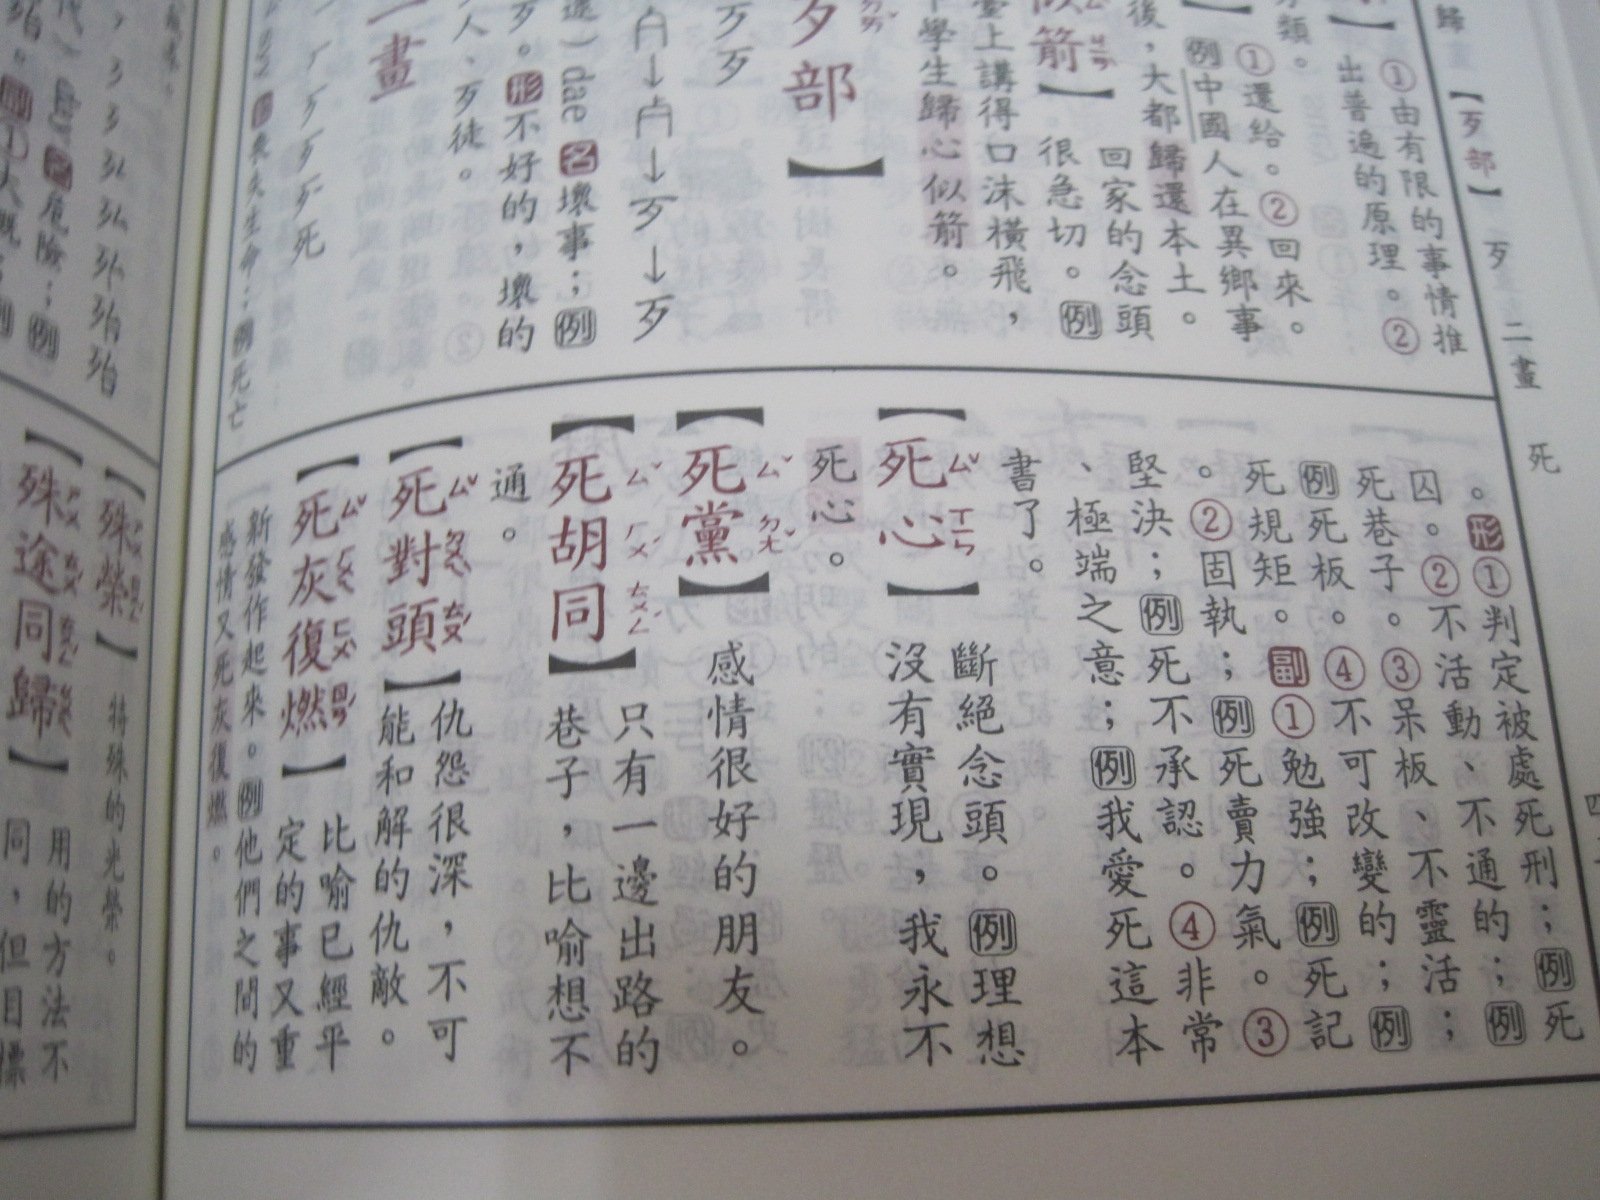 歸
【歹部】
歹
二畫
死
①由有限的事情推
出普遍的原理。②
①還給。②回來。
例中國人在異鄉事
後，大都歸還本土。
似箭】
回家的念頭
很急切。例
臺上講得口沫橫飛，
學生歸心似箭。
歹部】
歹
dae 名壞事；例
歹。形不好的，壞的
人、歹徒。
一畫
死
喪失生命；例死亡
。形①判定被處死刑；例死
囚。②不活動、不通的；例
死巷子。③呆板、不靈活；
例死板。④不可改變的；例
死規矩。副①勉強；例死記
。②固執；例死賣力氣。③
堅決；例死不承認。④非常
、極端之意；例我愛死這本
書了。
【死心】
ㄙˇ ㄒㄧㄣ
斷絕念頭。例理想
沒有實現，我永不
死心。
【死黨】
ㄙˇ ㄉㄤˇ
感情很好的朋友。
【死胡同】
ㄙˇ ㄏㄨˊ ㄊㄨㄥˊ
只有一邊出路的
巷子，比喻想不
通。
【死對頭】
仇怨很深，不可
能和解的仇敵。
【死灰復燃】
比喻已經平
定的事又重
新發作起來。例他們之間的
感情又死灰復燃。
【殊榮】
特殊的光榮。
【殊途同歸】
用的方法不
同，但目標
危險；例